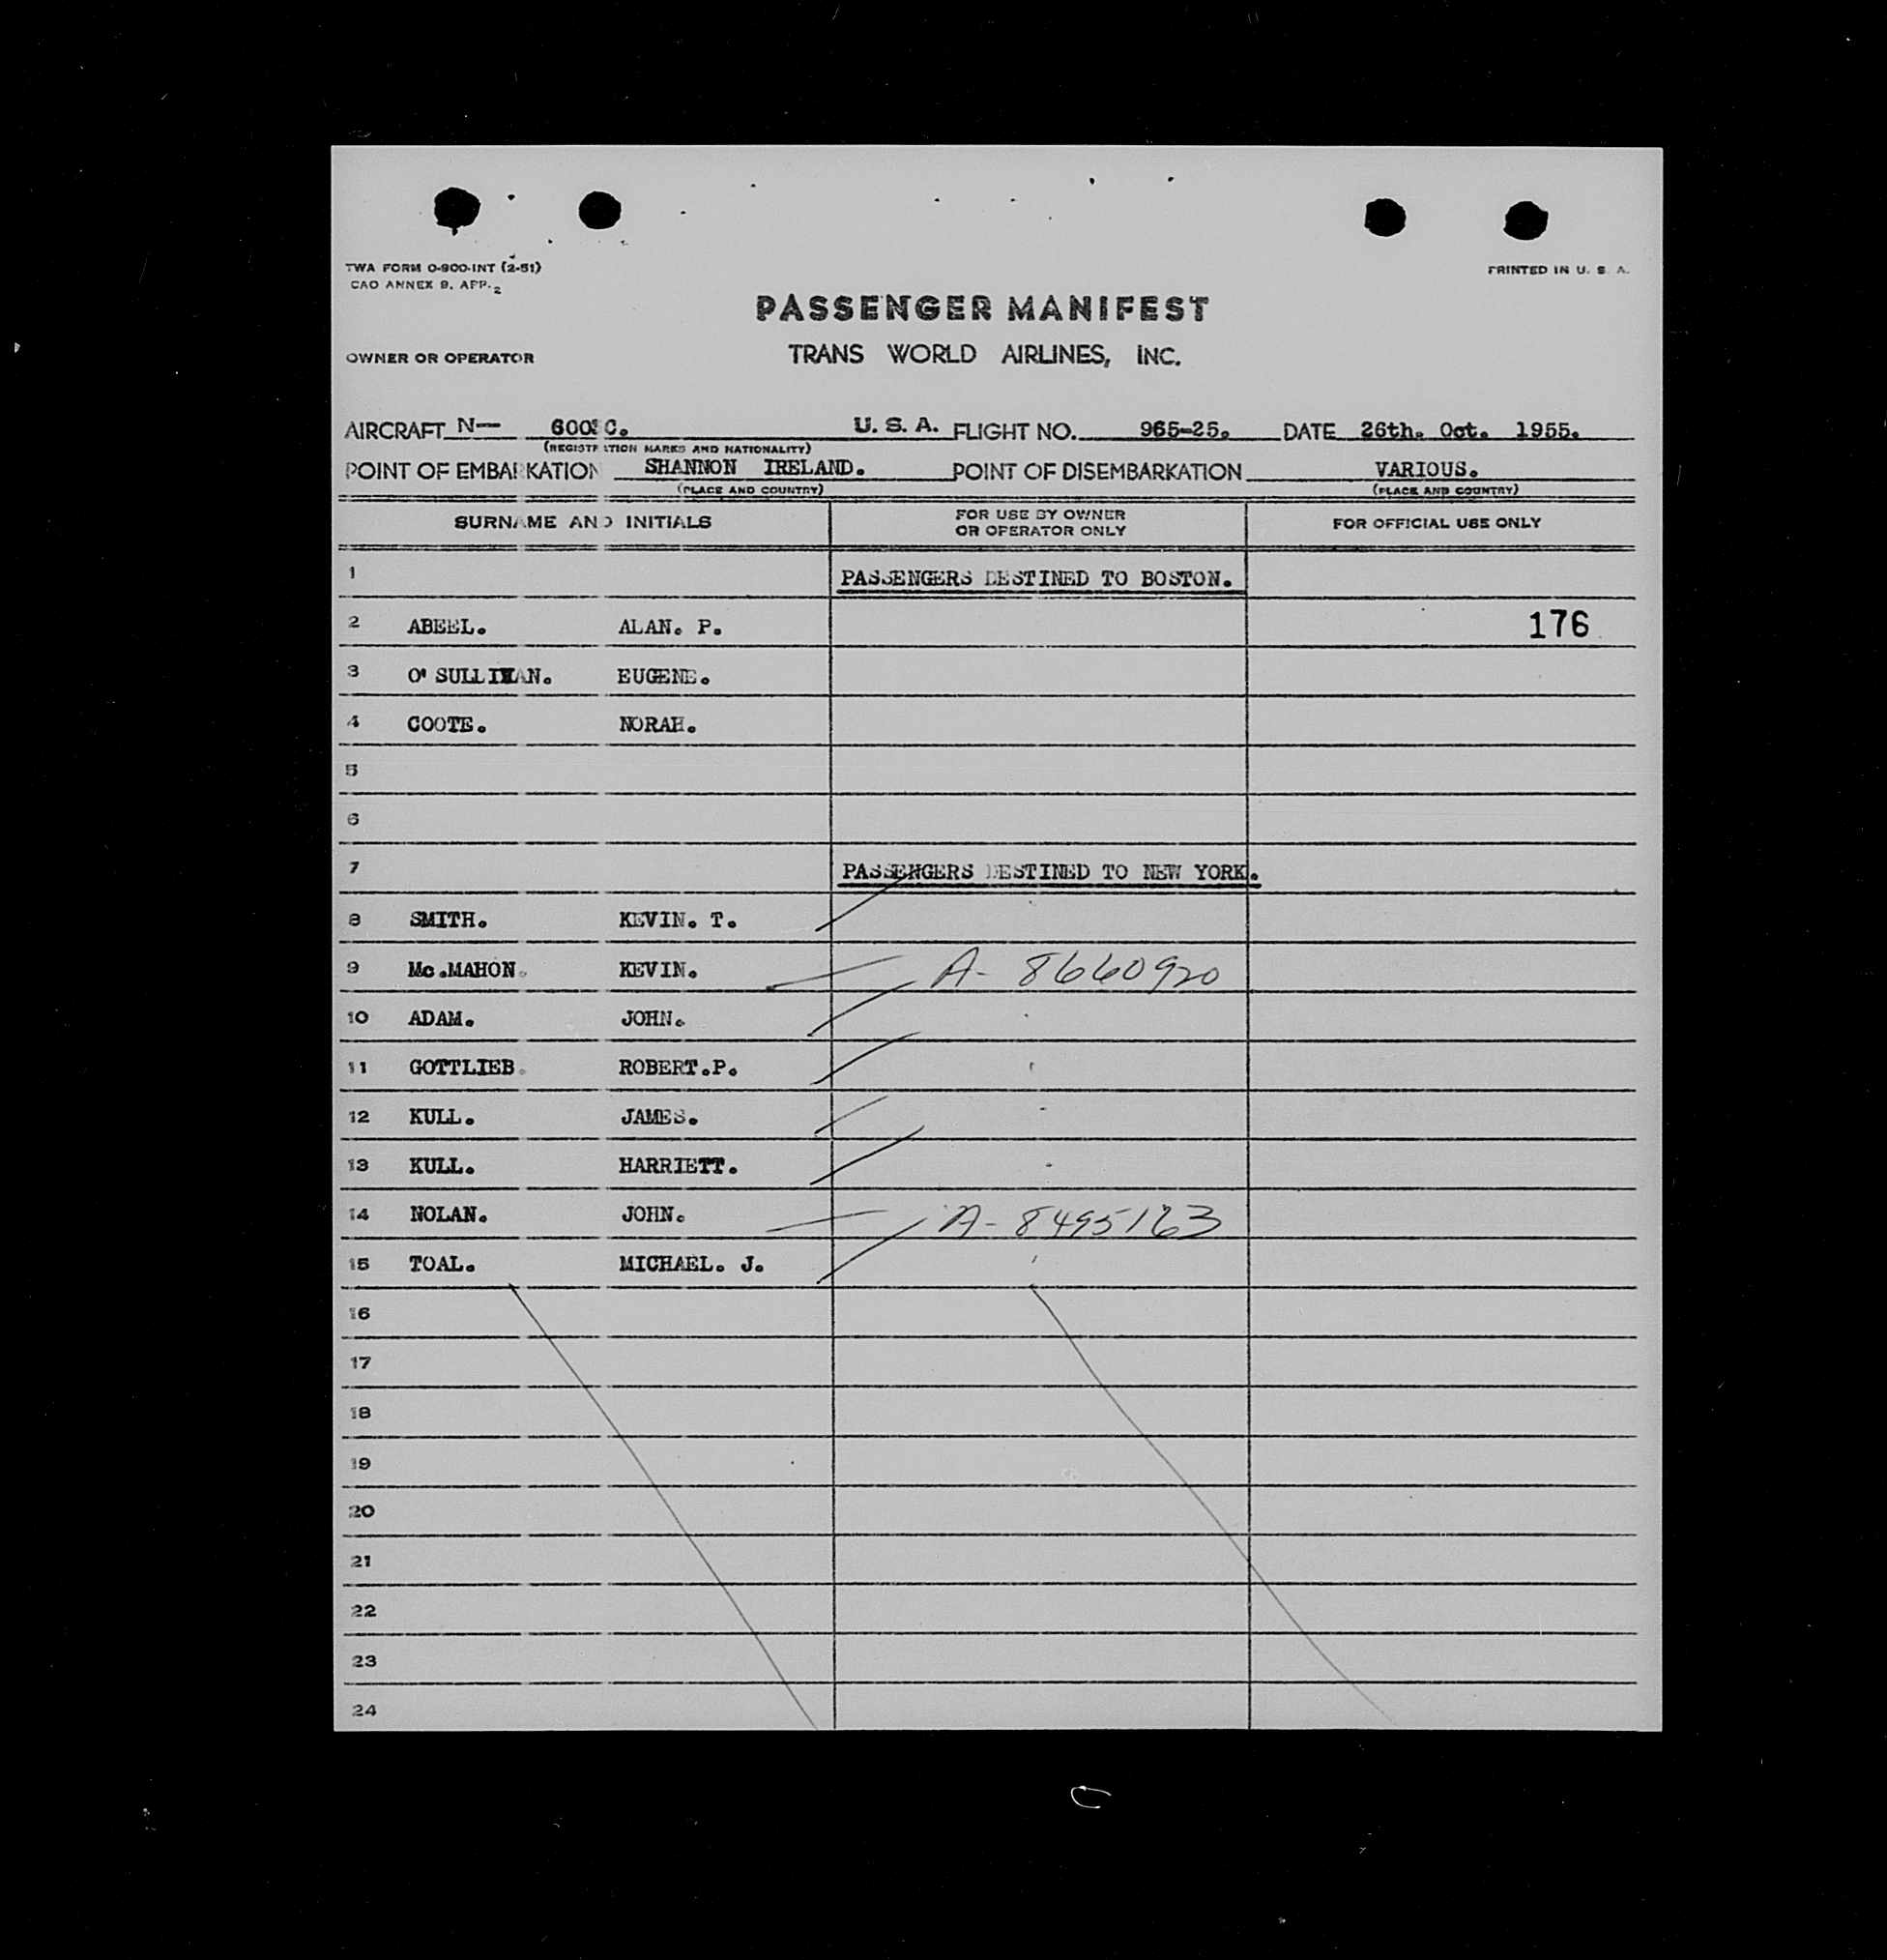 TWA FORM O-900-INT (2-51)
CAO ANNEX 9, APP. 2
PRINTED IN U. S. A.
PASSENGER MANIFEST
OWNER OR OPERATOR TRANS WORLD AIRLINES, INC.
AIRCRAFT N— C. U. S. A. FLIGHT NO. 965-25. DATE 26th. Oct. 1955.
(REGISTRATION MARKS AND NATIONALITY)
POINT OF EMBARKATION SHANNON IRELAND. POINT OF DISEMBARKATION VARIOUS.
(PLACE AND COUNTRY) (PLACE AND COUNTRY)
SURNAME AND INITIALS FOR USE BY OWNER OR OPERATOR ONLY FOR OFFICIAL USE ONLY
1 PASSENGERS DESTINED TO BOSTON.
2 ABEEL. ALAN. P. 176
3 O'SULLIVAN. EUGENE.
4 COOTE. NORAH.
5
6
7 PASSENGERS DESTINED TO NEW YORK.
8 SMITH. KEVIN. T.
9 Mc.MAHON. KEVIN. A- 8660920
10 ADAM. JOHN.
11 GOTTLIEB. ROBERT.P.
12 KULL. JAMES.
13 KULL. HARRIETT.
14 NOLAN. JOHN. A- 8495163
15 TOAL. MICHAEL. J.
16
17
18
19
20
21
22
23
24